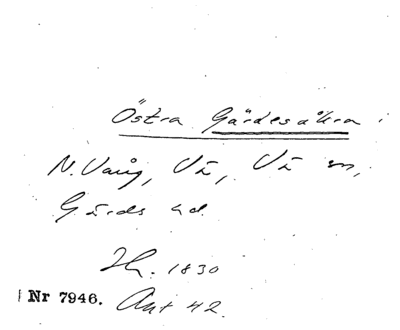 Östra Gärdesåkra i
N. Vång, Vä, Vä sn,
Gärds hd.
Jh. 1830
Nr 7946. Akt 42.